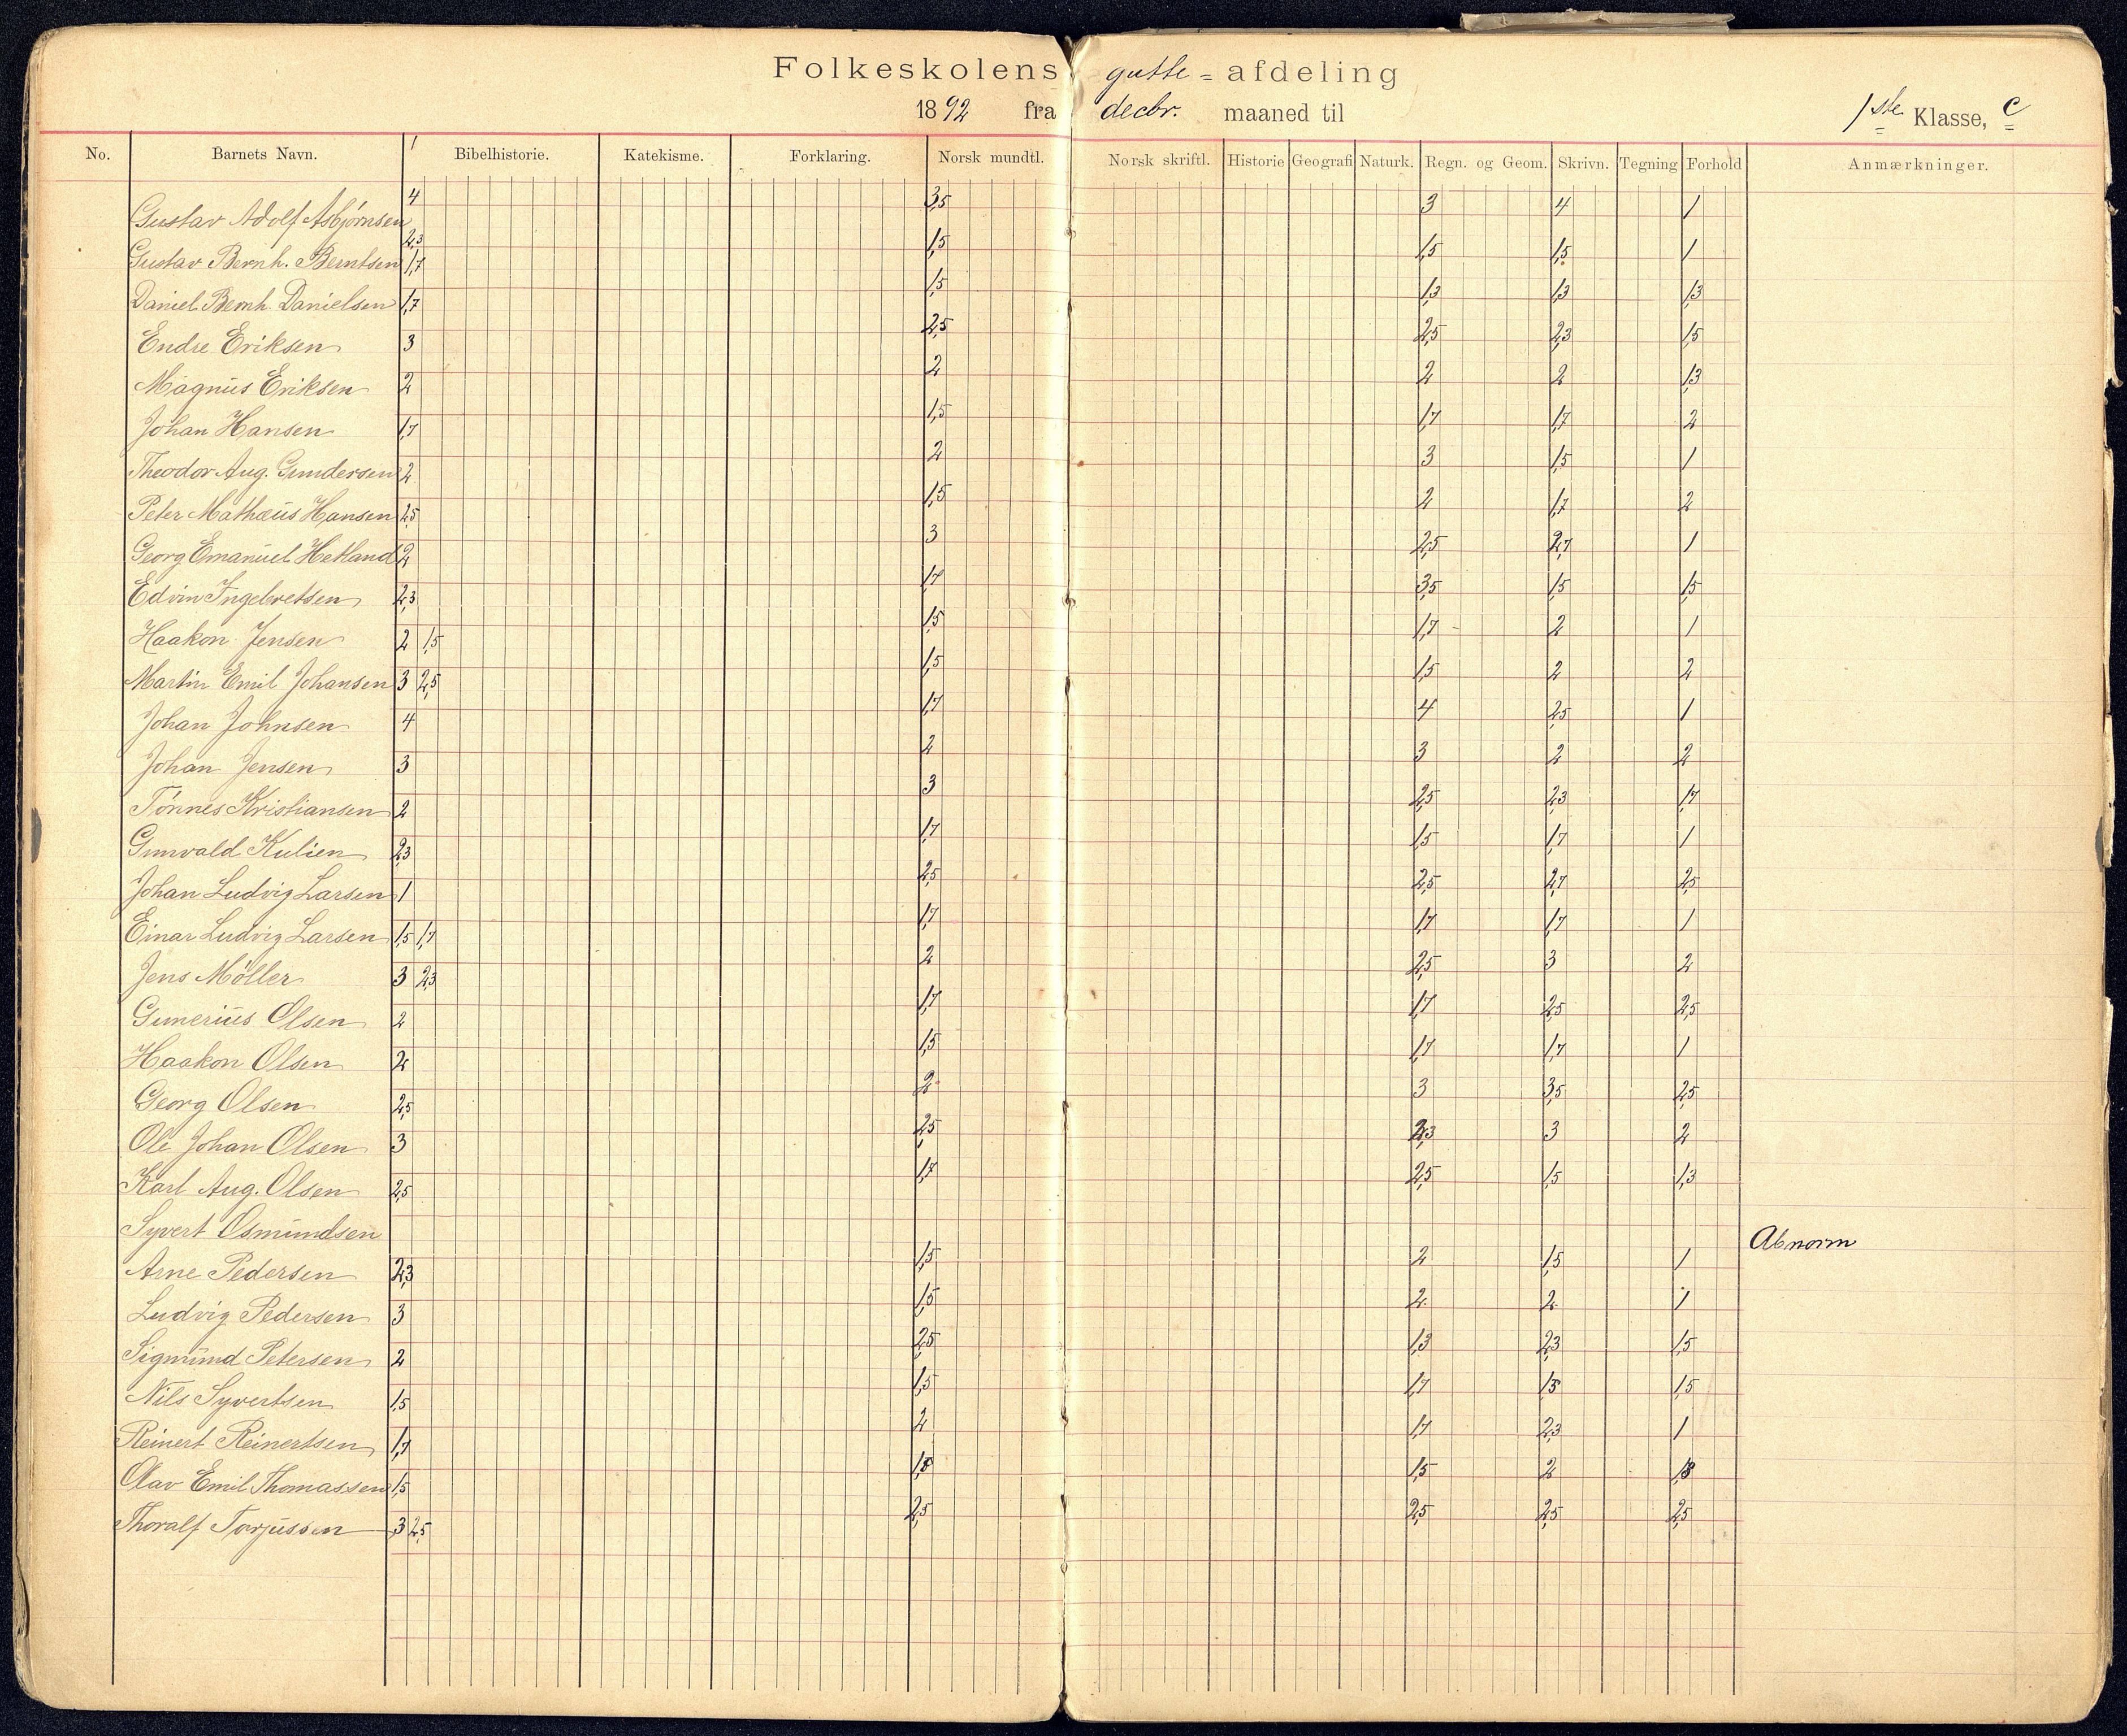 Folkeskolens gutte = afdeling
1892 fra decbr. maaned til 1ste Klasse, C
No. Barnets Navn. Bibelhistorie. Katekisme. Forklaring. Norsk mundtl. Norsk skriftl. Historie Geografi Naturk. Regn. og Geom. Skrivn. Tegning Forhold Anmærkninger.
Gustav Adolf Asbjørnsen 4 3,5 3 4 1
2,3
Gustav Bernh. Berntsen 1,7 1,5 1,5 1,5 1
Daniel Bernh. Danielsen 1,7 1,5 1,3 1,3 1,3
Endre Eriksen 3 2,5 2,5 2,3 1,5
Magnus Eriksen 2 2 2 2 1,3
Johan Hansen 1,7 1,5 1,7 1,7 2
Theodor Aug. Gundersen 2 2 3 1,5 1
Peter Mathæus Hansen 2,5 1,5 2 1,7 2
Georg Emanuel Hetland 2 3 2,5 2,7 1
Edvin Ingebretsen 2,3 1,7 3,5 1,5 1,5
Haakon Jensen 2 1,5 1,5 1,7 2 1
Martin Emil Johansen 3 2,5 1,5 1,5 2 2
Johan Johnsen 4 1,7 4 2,5 1
Johan Jensen 3 2 3 2 2
Tönnes Kristiansen 2 3 2,5 2,3 1,7
Gunvald Kulien 2,3 1,7 1,5 1,7 1
Johan Ludvig Larsen 1 2,5 2,5 2,7 2,5
Einar Ludvig Larsen 1,5 1,7 1,7 1,7 1,7 1
Jens Möller 3 2,3 2 2,5 3 2
Gunerius Olsen 2 1,7 1,7 2,5 2,5
Haakon Olsen 2 1,5 1,7 1,7 1
Georg Olsen 2,5 2 3 3,5 2,5
Ole Johan Olsen 3 2,5 2,3 3 2
Karl Aug. Olsen 2,5 1,7 2,5 1,5 1,3
Syvert Osmundsen Abnorm
Arne Pedersen 2,3 1,5 2 1,5 1
Ludvig Pedersen 3 1,5 2 2 1
Sigmund Petersen 2 2,5 1,3 2,3 1,5
Nils Syvertsen 1,5 1,5 1,7 1,5 1,5
Reinert Reinertsen 1,7 2 1,7 2,3 1
Olav Emil Thomassen 1,5 1,5 2
Thoralf Torjussen 3 2,5 2,5 2,5 2,5 2,5